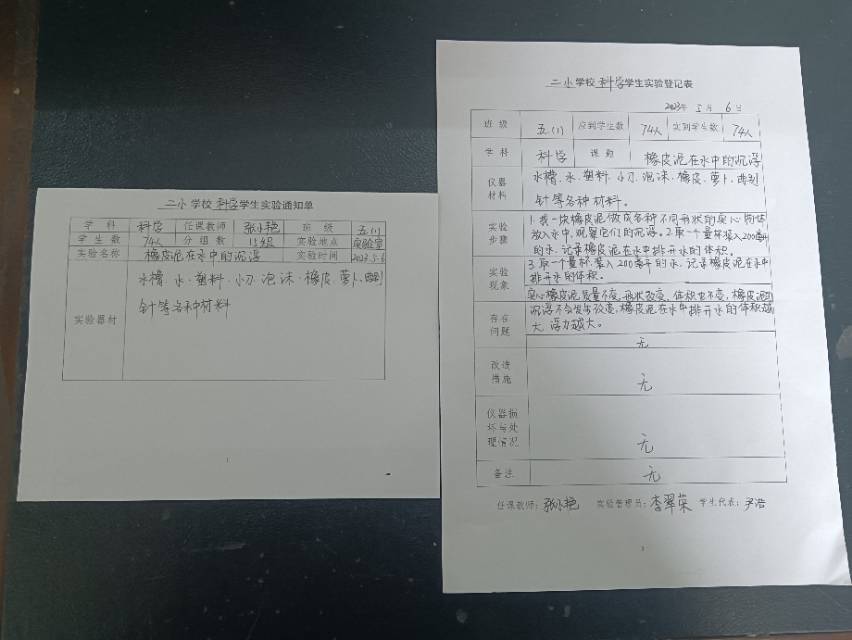 二小学校科学学生实验通知单
学科 科学 任课教师 张小艳 班级 五(1)
学生数 74人 分组数 12组 实验地点 实验室
实验名称 橡皮泥在水中的沉浮 实验时间 2023.5.6
实验器材
水槽、水、塑料、小刀、泡沫、橡皮、萝卜、回形
针等各种材料
1
二小学校科学学生实验登记表
2023年 5月 6日
班级 五(1) 应到学生数 74人 实到学生数 74人
学科 科学 课题 橡皮泥在水中的沉浮
仪器材料
水槽、水、塑料、小刀、泡沫、橡皮、萝卜、回形
针等各种材料。
实验步骤
1.找一块橡皮泥做成各种不同形状的实心物体
放入水中,观察它们的沉浮。2.取一个量杯装入200毫升
的水,记录橡皮泥在水中排开水的体积。
实验现象
3.取一个量杯,装入200毫升的水,记录橡皮泥在水中
排开水的体积。
实心橡皮泥质量不变,形状改变,体积也不变,橡皮泥的
存在问题
沉浮不会发生改变,橡皮泥在水中排开水的体积越
大,浮力越大。
无
改进措施
无
仪器损坏与处理情况
无
备注 无
任课教师:张小艳 实验管理员:李翠荣 学生代表:尹浩